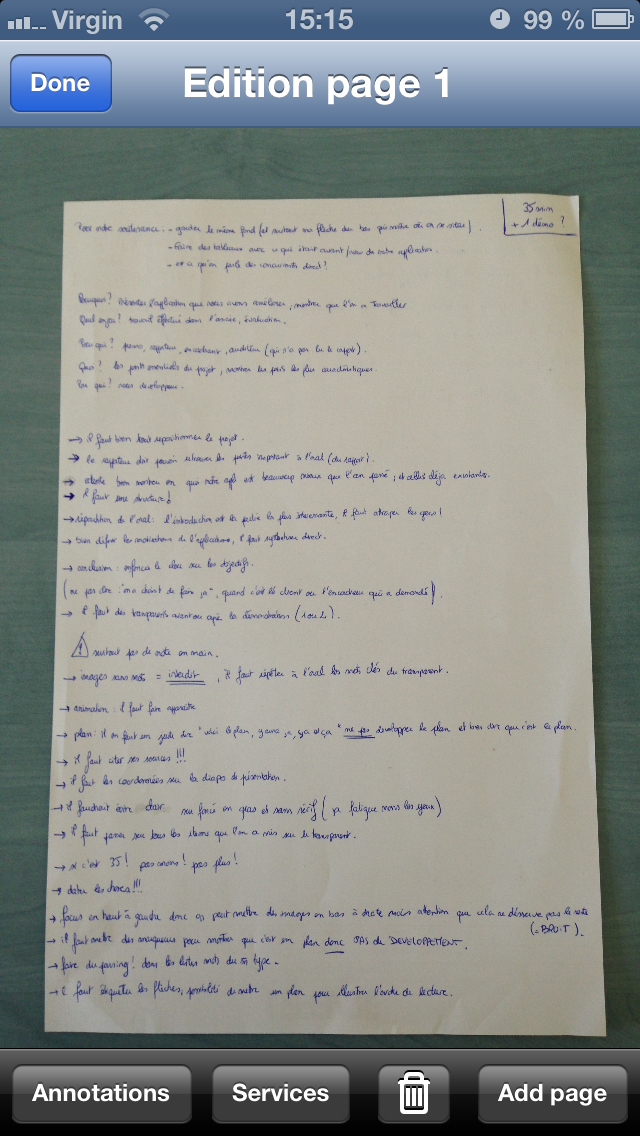 Virgin 15:15 99 %
Done Edition page 1
35 min
+ 1 démo ?
Pour notre soutenance : - garder le même fond (et surtout ma flèche du bas qui montre où on se situe) .
- faire des tableaux avec ce qui était avant / de notre application.
- est ce qu'on parle des concurrents direct ?
Pourquoi ? Présenter l'application que nous avons améliorer, montrer que l'on a travailler
Quel enjeu ? travail effectué dans l'année, évaluation.
Pour qui ? rapporteur, encadrant, auditeur (qui n'a pas lu le rapport).
Quoi ? les points essentiels du projet, montrer les points les plus caractéristiques.
Par qui ? nous développeur.
→ il faut bien tout repositionner le projet.
→ le rapporteur doit pouvoir retrouver les parties important à l'oral (du rapport).
→ bien montrer en quoi notre est beaucoup mieux que l'an passé, et celles déjà existantes.
→ il faut une structure !
→ répartition de l'oral : l'introduction est la partie la plus intéressante, il faut attraper les gens !
→ bien définir les motivations de l'application, il faut direct.
→ conclusion : enfoncer le clou sur les objectifs.
(ne pas dire : "on a choisit de faire ça", quand c'est le client ou l'encadreur qui a demandé) .
→ il faut des transparents avant ou après la démonstration (1 ou 2).
! surtout pas de note en main.
→ images sans mots = interdit , il faut répéter à l'oral les mots clés du transparent.
→ animation : il faut faire apparaître
→ plan : si on fait un juste dire "voici le plan, y aura ça, ça et ça" ne pas développer le plan et bien dire que c'est le plan.
→ il faut citer ses sources !!!
→ il faut les coordonnées sur la diapo de présentation.
→ il faudrait écrire clair sur foncé en gras et sans sérif (ça fatigue moins les yeux)
→ il faut passer sur tous les items que l'on a mis sur le transparent.
→ c'est 35 ! pas moins ! pas plus !
→ dater les choses !!!
→ focus en haut à gauche donc on peut mettre des images en bas à droite mais attention que cela ne desserve pas le reste
(= BRUIT).
→ il faut mettre des marqueurs pour montrer que c'est un plan donc PAS de DEVELOPPEMENT.
→ faire du parsing ! dans les listes mots du type.
→ il faut étiqueter les flèches, possibilité de mettre un plan pour illustrer l'ordre de lecture.
Annotations Services Add page